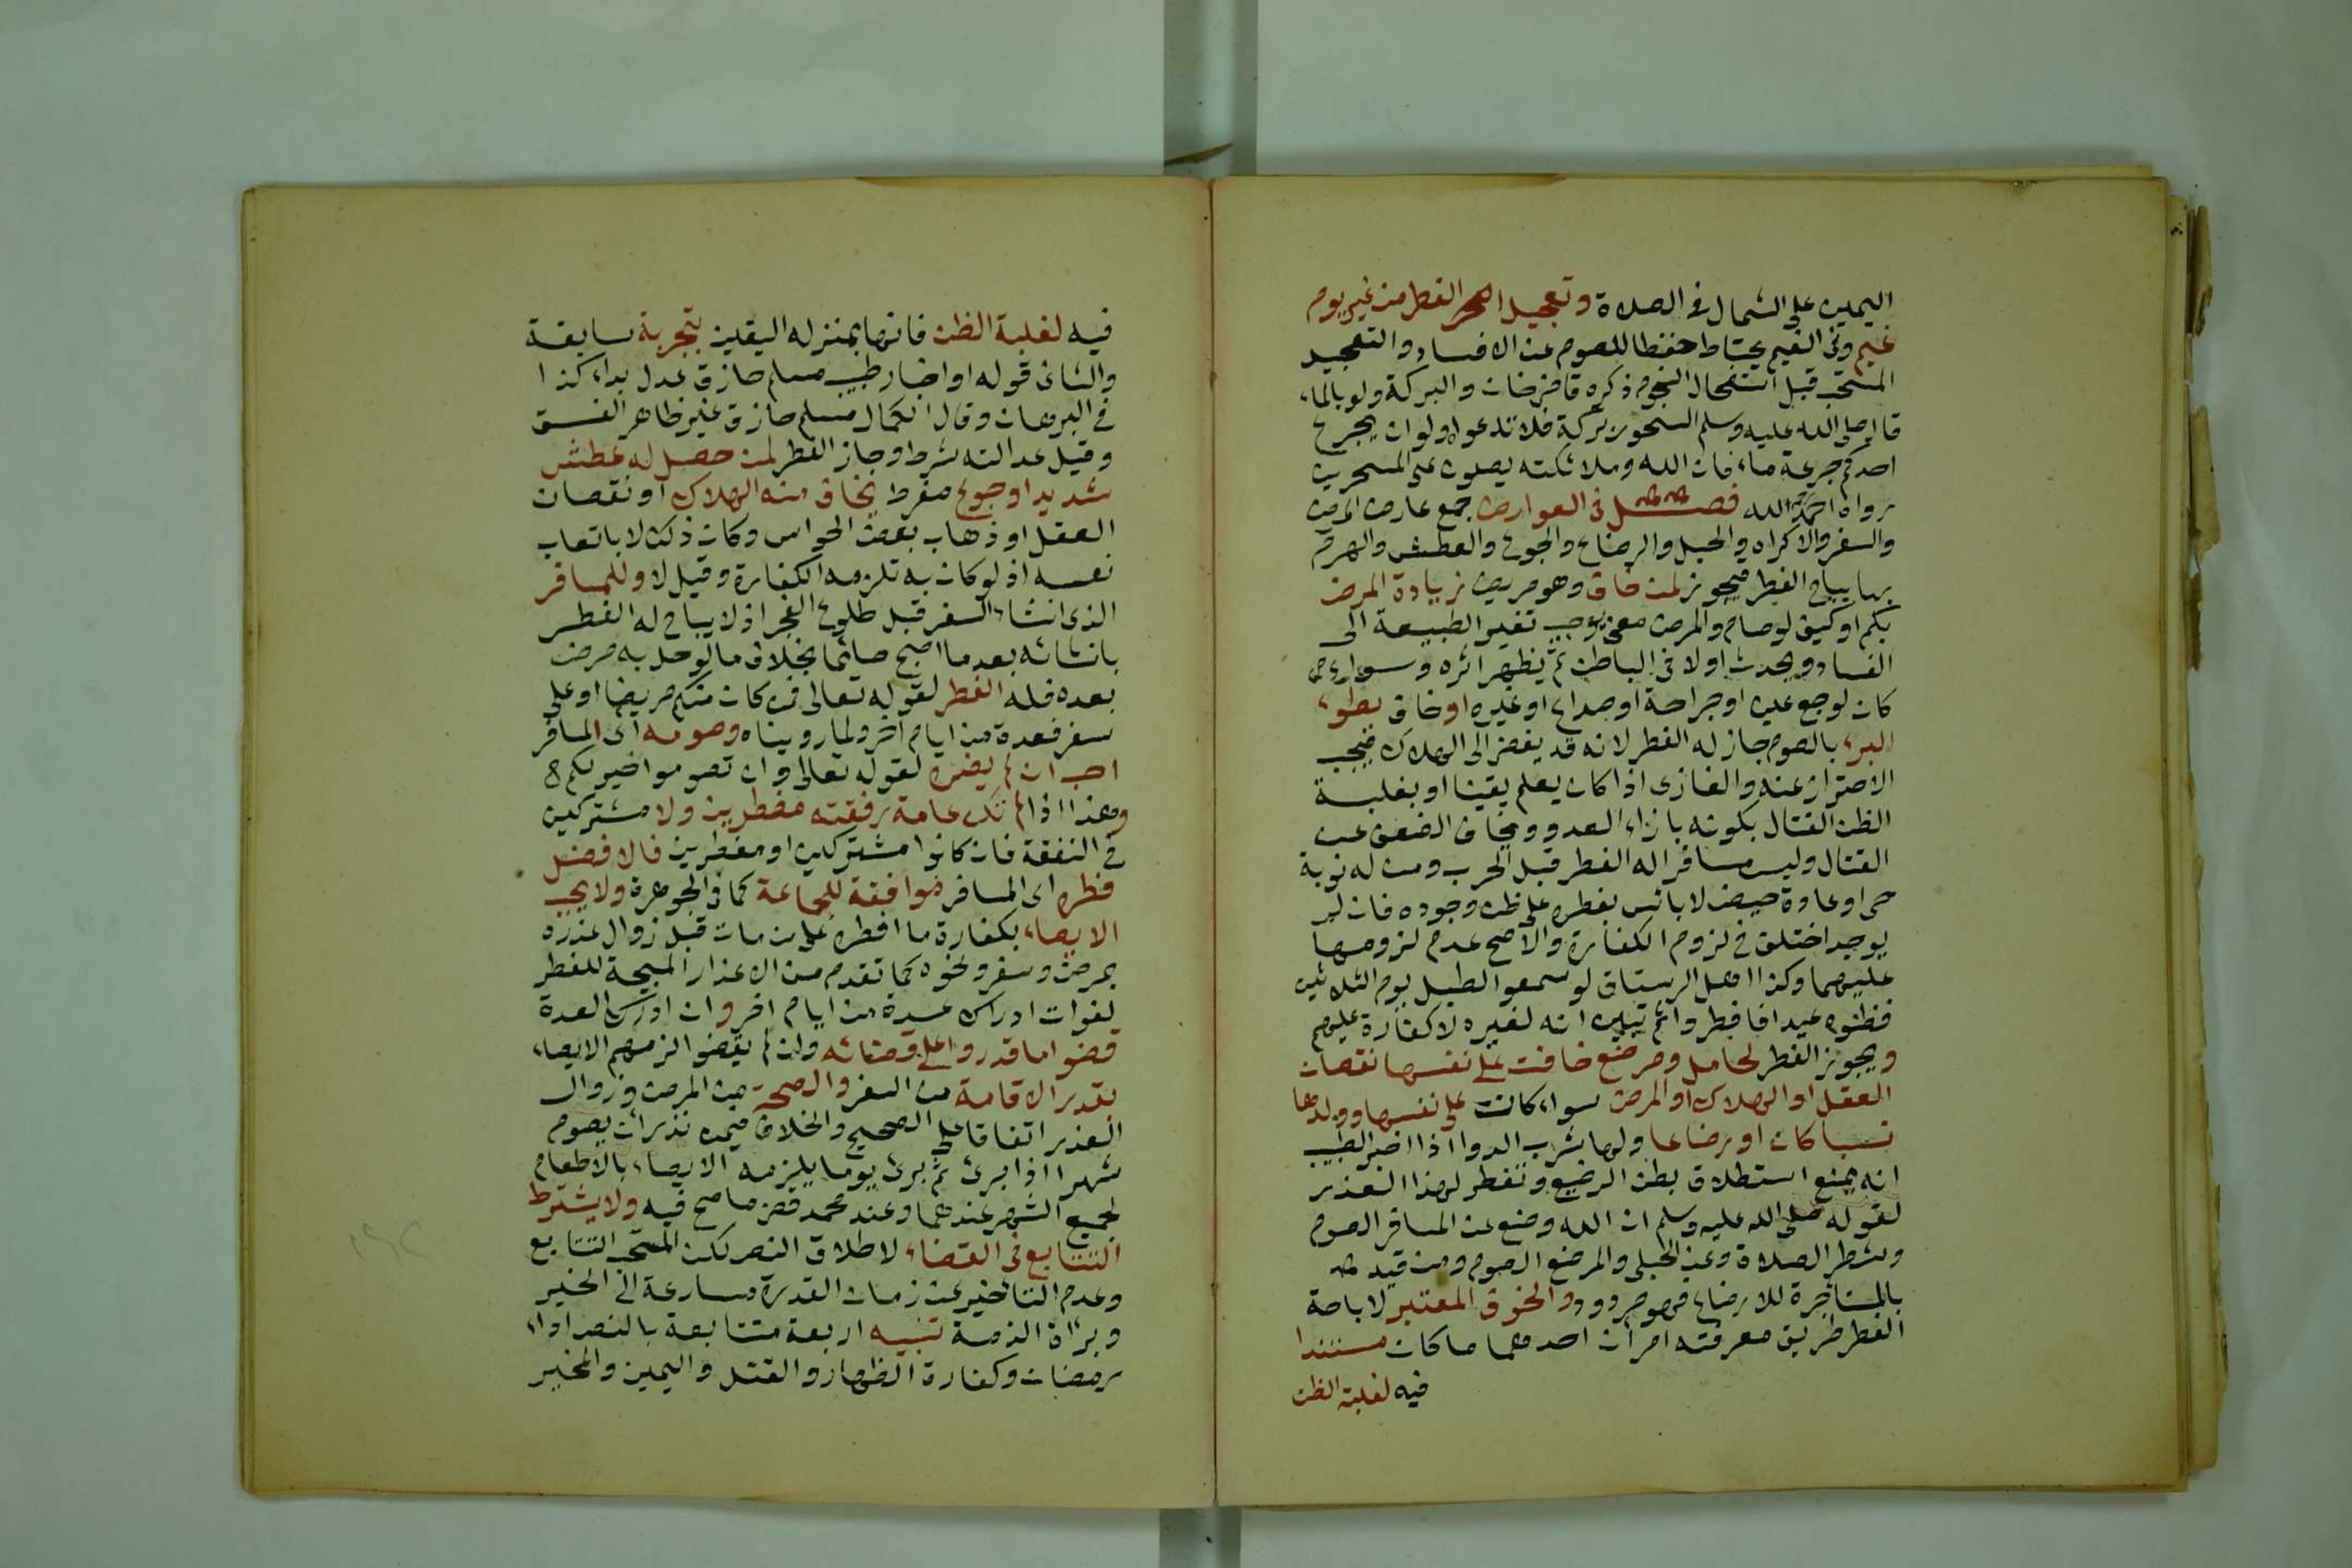 اليمين على الشمال فى الصلاة وتعجيل الفطر من غير يوم
غيم وفى الغيم يحتاط حفظا للصوم عن الافساد والتعجيل
المستحب قبل استفحال النجوم ذكره قاضيخان والبركة ولو بالماء
قال صلى الله عليه وسلم السحور بركة فلا تدعوه ولو ان يجرع
احدكم جرعة ماء فان الله وملائكته يصلون على المتسحرين
رواه احمد رحمه الله فصل فى العوارض جمع عارض المرض
والسفر والاكراه والحبل والرضاع والجوع والعطش والهرم
بها يباح الفطر فيجوز لمن خاف وهو مريض زيادة المرض
بكم او كيف لو صام والمرض معنى يوجب تغير الطبيعة الى
الفساد ويحدث اولا فى الباطن ثم يظهر اثره وسواء
كان لوجع عين او جراحة او صداع او غيره او خاف بطوء
البرء بالصوم جاز له الفطر لانه قد يفضى الى الهلاك فيجب
الاحتراز عنه والغازى اذا كان يعلم يقينا او بغلبة
الظن القتال بكونه بازاء العدو ويخاف الضعف عن
القتال وليس مسافرا له الفطر قبل الحرب ومن له نوبة
حمى او عادة حيض لا باس بفطره على ظن وجوده فان لم
يوجد اختلف فى لزوم الكفارة والاصح عدم لزومها
عليهما وكذا اهل الرستاق لو سمعوا الطبل يوم الثلاثين
فظنوه عيدا فافطروا ثم تبين انه لغيره لا كفارة عليهم
ويجوز الفطر لحامل ومرضع خافت على نفسها نقصان
العقل او الهلاك او المرض سواء كانت على نفسها وولدها
نسبا كان او رضاعا ولها شرب الدوا اذا اخبر الطبيب
انه يمنع استطلاق بطن الرضيع وتفطر لهذا العذر
لقوله صلى الله عليه وسلم ان الله وضع عن المسافر الصوم
وشطر الصلاة وعن الحبلى والمرضع الصوم ومن قيد
بالمستأجرة للارضاع فهو مردود والخوف المعتبر لاباحة
الفطر طريق معرفته امران احدهما ما كان مستندا
فيه لغلبة الظن
فيه لغلبة الظن فانها بمنزله اليقين بتجربة سابقة
والثانى قوله او اخبار طبيب مسلم حاذق عدل بداء كذا
فى البرهان وقال الكمال مسلم حاذق غير ظاهر الفسق
وقيل عدالته شرط وجاز الفطر لمن حصل له عطش
شديد او جوع مفرط يخاف منه الهلاك او نقصان
العقل او ذهاب بعض الحواس وكان ذلك لا باتعاب
نفسه اذ لو كان به تلزمه الكفارة وقيل لا وللمسافر
الذى انشاء السفر قبل طلوع الفجر اذ لا يباح له الفطر
بانشائه بعد ما اصبح صائما بخلاف ما لو حل به مرض
بعده فله الفطر لقوله تعالى فمن كان منكم مريضا او على
سفر فعدة من ايام اخر ولما رويناه وصومه اى المسافر
احب ان لم يضره لقوله تعالى وان تصوموا خير لكم
وهذا اذا لم تكن عامة رفقته مفطرين ولا مشتركين
فى النفقة فان كانوا مشتركين او مفطرين فالافضل
فطره اى المسافر موافقة للجماعة كما فى الجوهرة ولا يجب
الايصاء بكفارة ما افطره على من مات قبل زوال عذره
بمرض وسفر ونحوه كما تقدم من الاعذار المبيحة للفطر
لفوات ادراك عدة من ايام اخر وان ادرك العدة
قضوا ما قدروا على قضائه وان لم يقضوا لزمهم الايصاء
بقدر الاقامة من السفر والصحة من المرض وزوال
العذر اتفاقا على الصحيح والخلاف فيمن نذر ان يصوم
شهرا اذا برئ ثم برئ يوما يلزمه الايصاء بالاطعام
لجميع الشهر عندهما وعند محمد قضى ما صح فيه ولا يشترط
التتابع فى القضاء لاطلاق النص لكن المستحب التتابع
وعدم التاخير عن زمان القدرة مسارعة الى الخير
وبراة الذمة تنبيه اربعة متتابعة بالنص اداء
رمضان وكفارة الظهار والقتل واليمين والمخير